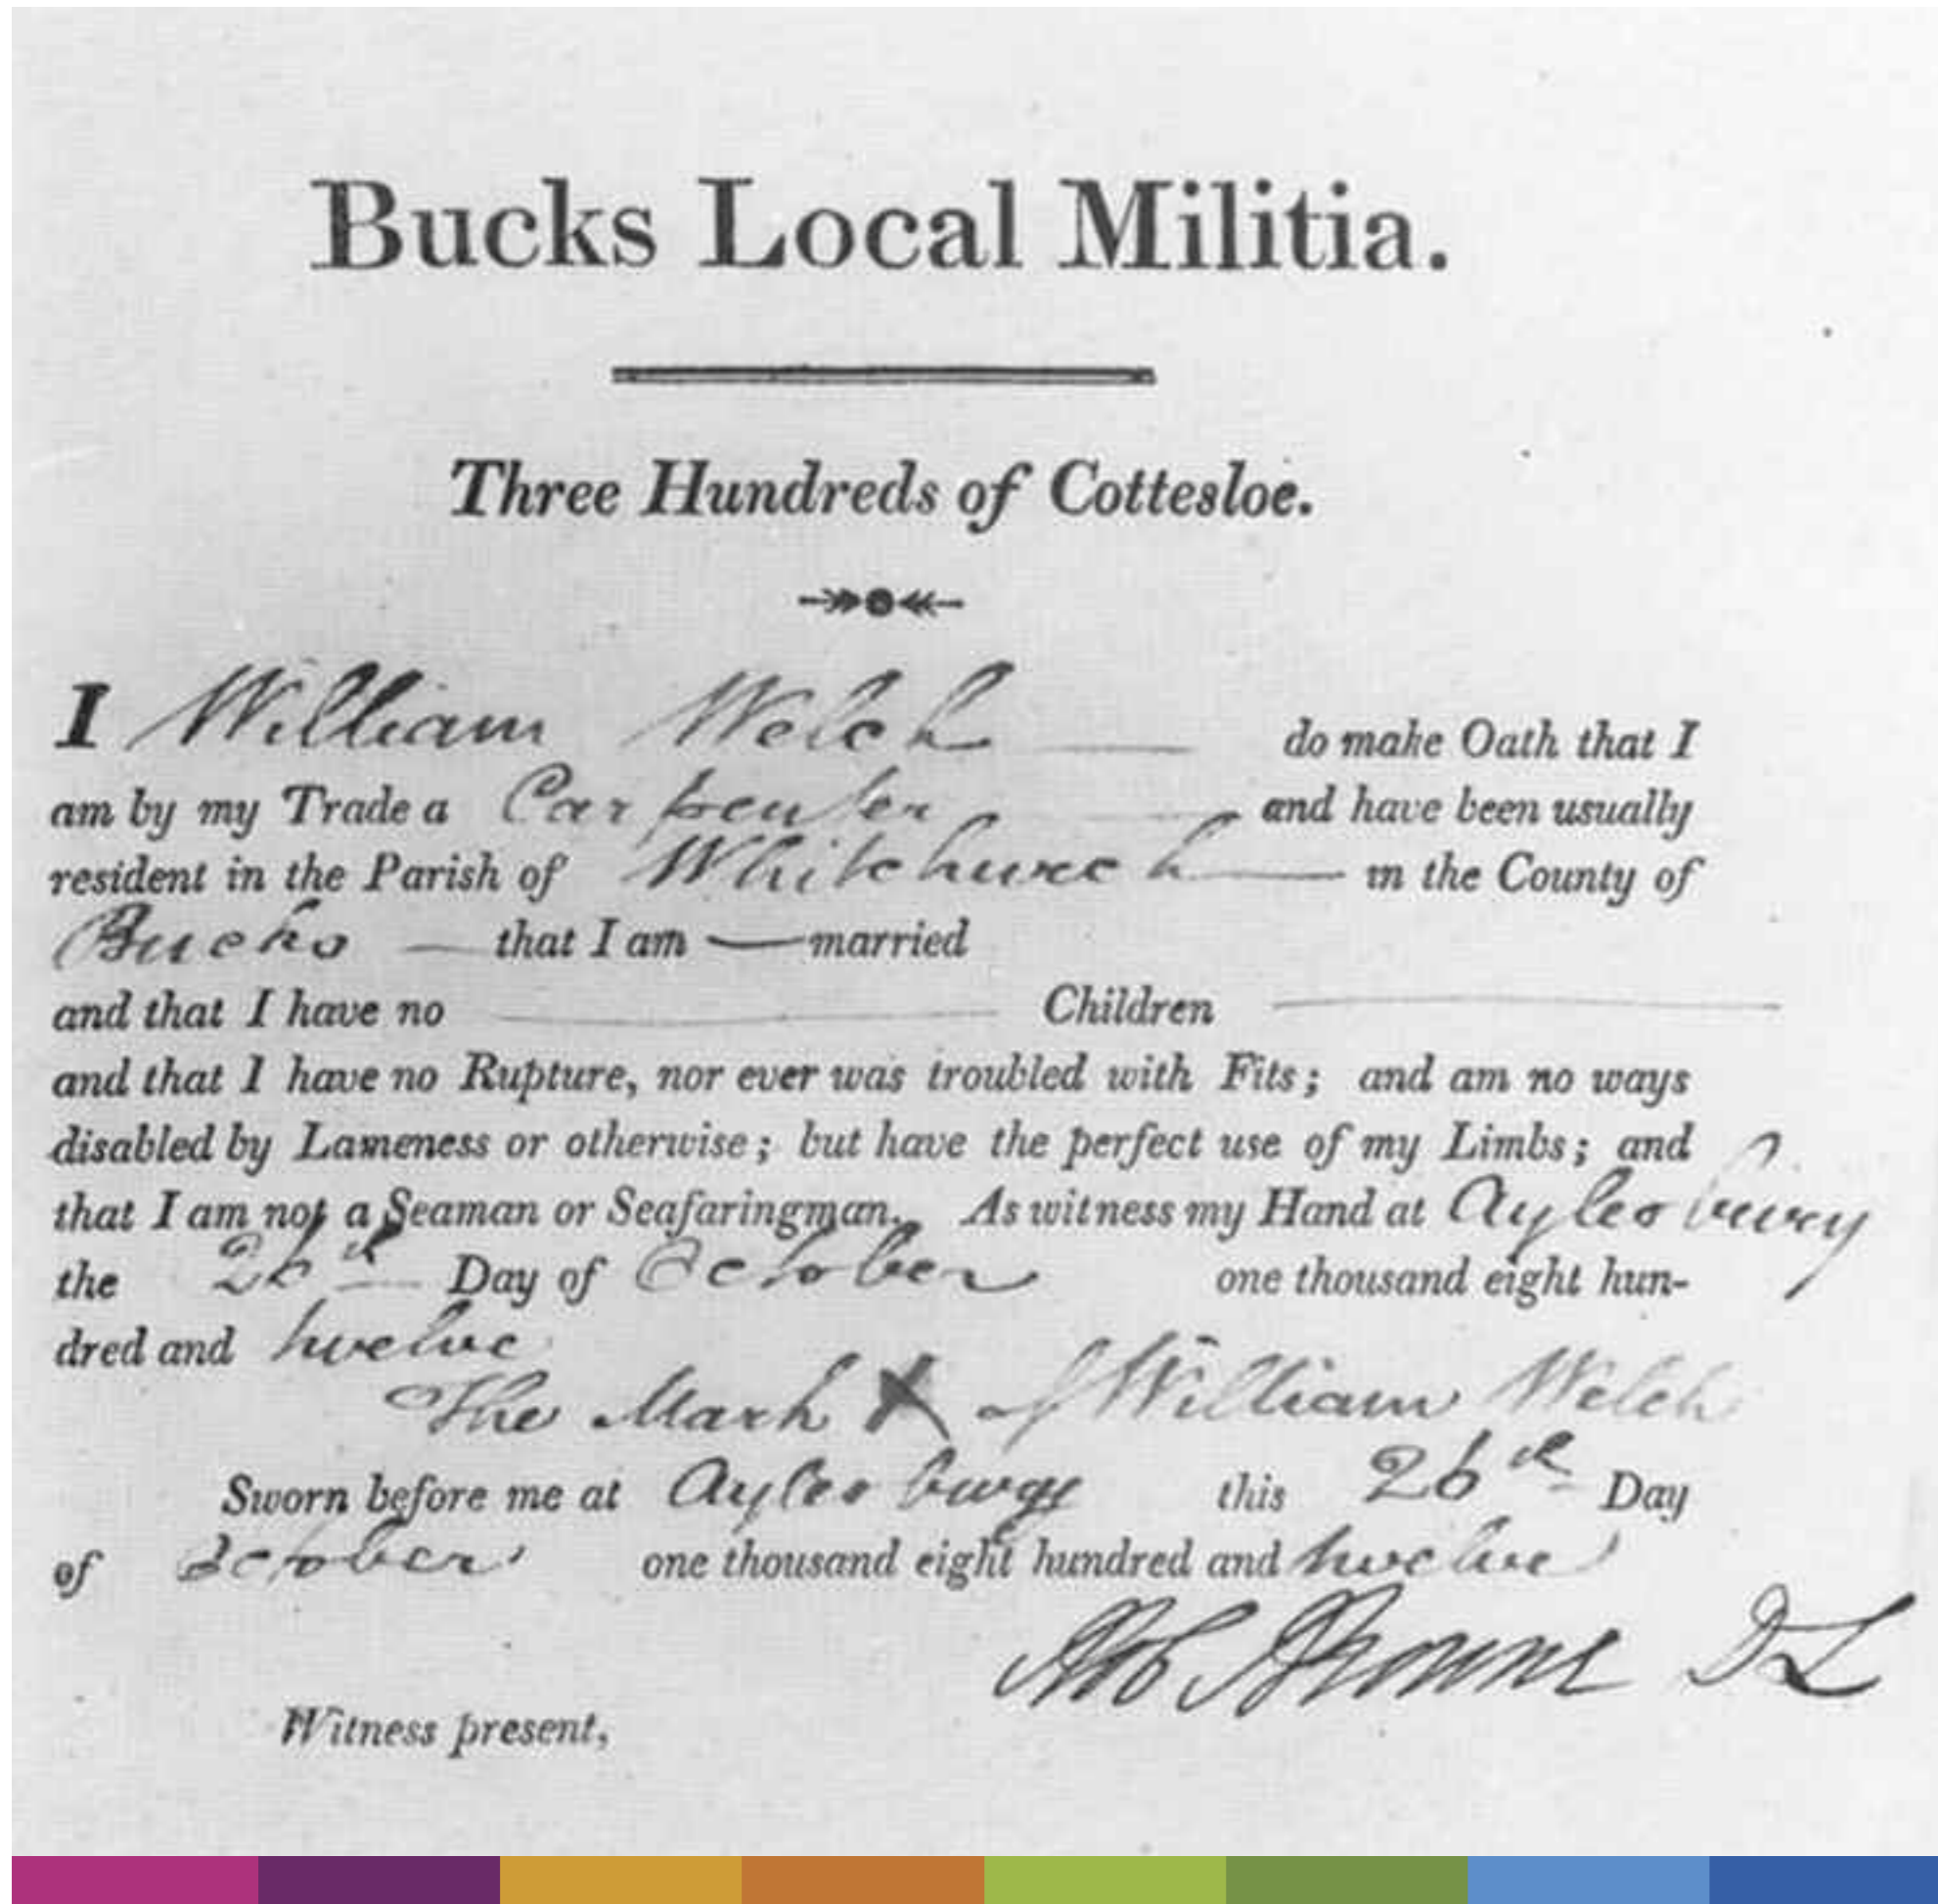 Bucks Local Militia.
Three Hundreds of Cottesloe.
I William Welch do make Oath that I
am by my Trade a Carpenter and have been usually
resident in the Parish of Whitchurch in the County of
Bucks that I am — married
and that I have no Children
and that I have no Rupture, nor ever was troubled with Fits; and am no ways
disabled by Lameness or otherwise; but have the perfect use of my Limbs; and
that I am not a Seaman or Seafaringman. As witness my Hand at Aylesbury
the 26th Day of October one thousand eight hun-
dred and twelve
The Mark X of William Welch
Sworn before me at Aylesbury this 26th Day
of October one thousand eight hundred and twelve
Browne DL
Witness present,